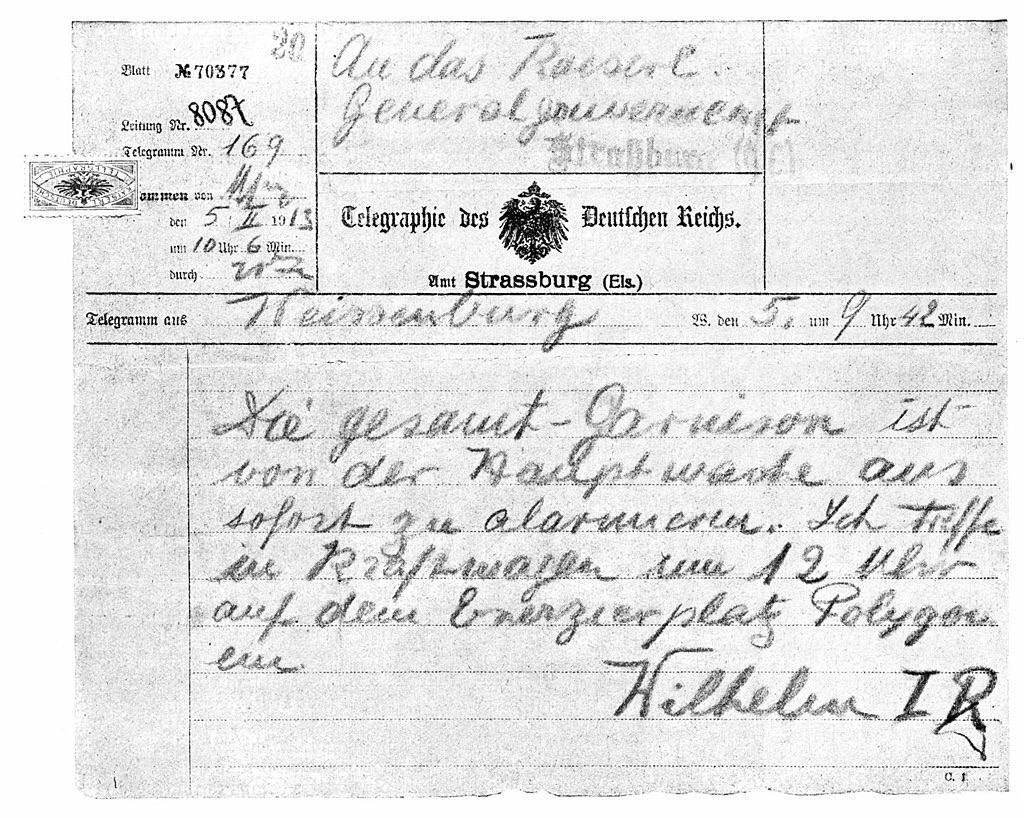 20
Blatt № 70377
Leitung Nr. 8087
Telegramm Nr. 169
ommen von
den 5 II 1913
um 10 Uhr 6 Min.
durch
An das Kaiserl.
Generalgouvernement
Straßburg (Els)
Telegraphie des Deutschen Reichs.
Amt Strassburg (Els.)
Telegramm aus Weissenburg W. den 5. um 9 Uhr 42 Min.
Die gesamt-Garnison ist
von der Hauptwache aus
sofort zu alarmieren. Ich treffe
im Kraftwagen um 12 Uhr
auf dem Exerzierplatz Polygon
ein
Wilhelm I R
C. 1